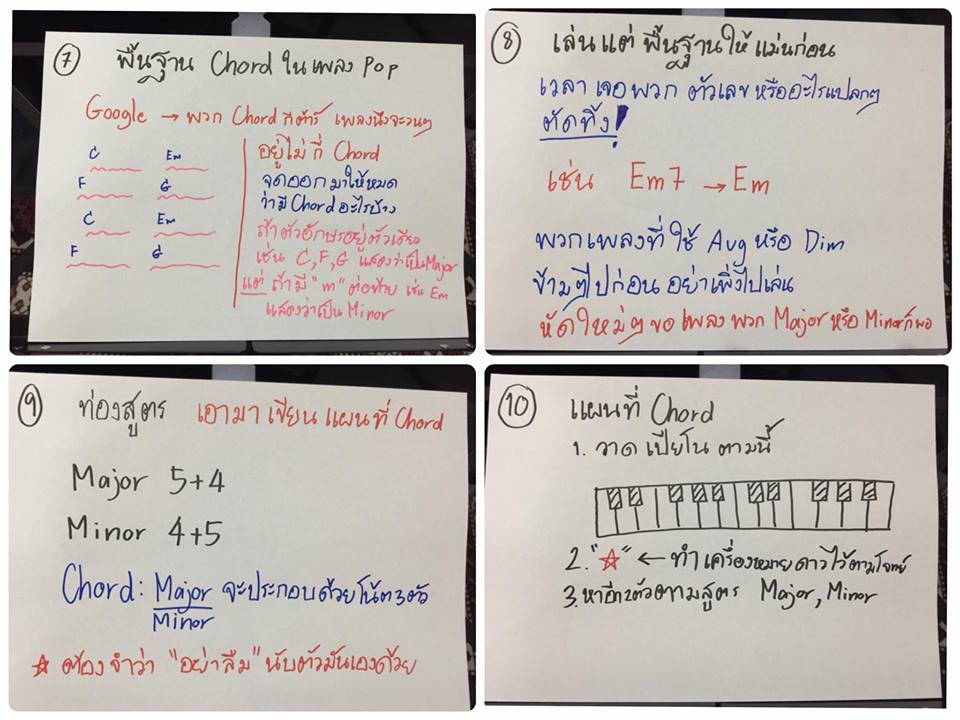 7 พื้นฐาน Chord ในเพลง Pop
Google → พวก Chord กีต้าร์ เพลงนึงจะวนๆ
C Em
F G
C Em
F G
อยู่ไม่กี่ Chord
จดออกมาให้หมด
ว่ามี Chord อะไรบ้าง
ถ้าตัวอักษรอยู่ตัวเดียว
เช่น C, F, G แสดงว่าเป็น Major
แต่ ถ้ามี "m" ต่อท้าย เช่น Em
แสดงว่าเป็น Minor
8 เล่นแต่ พื้นฐานให้แม่นก่อน
เวลา เจอพวก ตัวเลข หรืออะไรแปลกๆ
ตัดทิ้ง!
เช่น Em7 → Em
พวกเพลงที่ ใช้ Aug หรือ Dim
ข้ามๆไปก่อน อย่าเพิ่งไปเล่น
หัดใหม่ๆ ขอ เพลง พวก Major หรือ Minor ก็พอ
9 ท่องสูตร เอามา เขียน แผนที่ Chord
Major 5+4
Minor 4+5
Chord: Major จะประกอบด้วยโน้ต 3 ตัว
Minor
☆ ต้องจำว่า "อย่าลืม" นับตัวมันเองด้วย
10 แผนที่ Chord
1. วาด เปียโน ตามนี้
2. "☆" ← ทำเครื่องหมายดาวไว้ตามโจทย์
3. หาอีก 2 ตัวตามสูตร Major, Minor